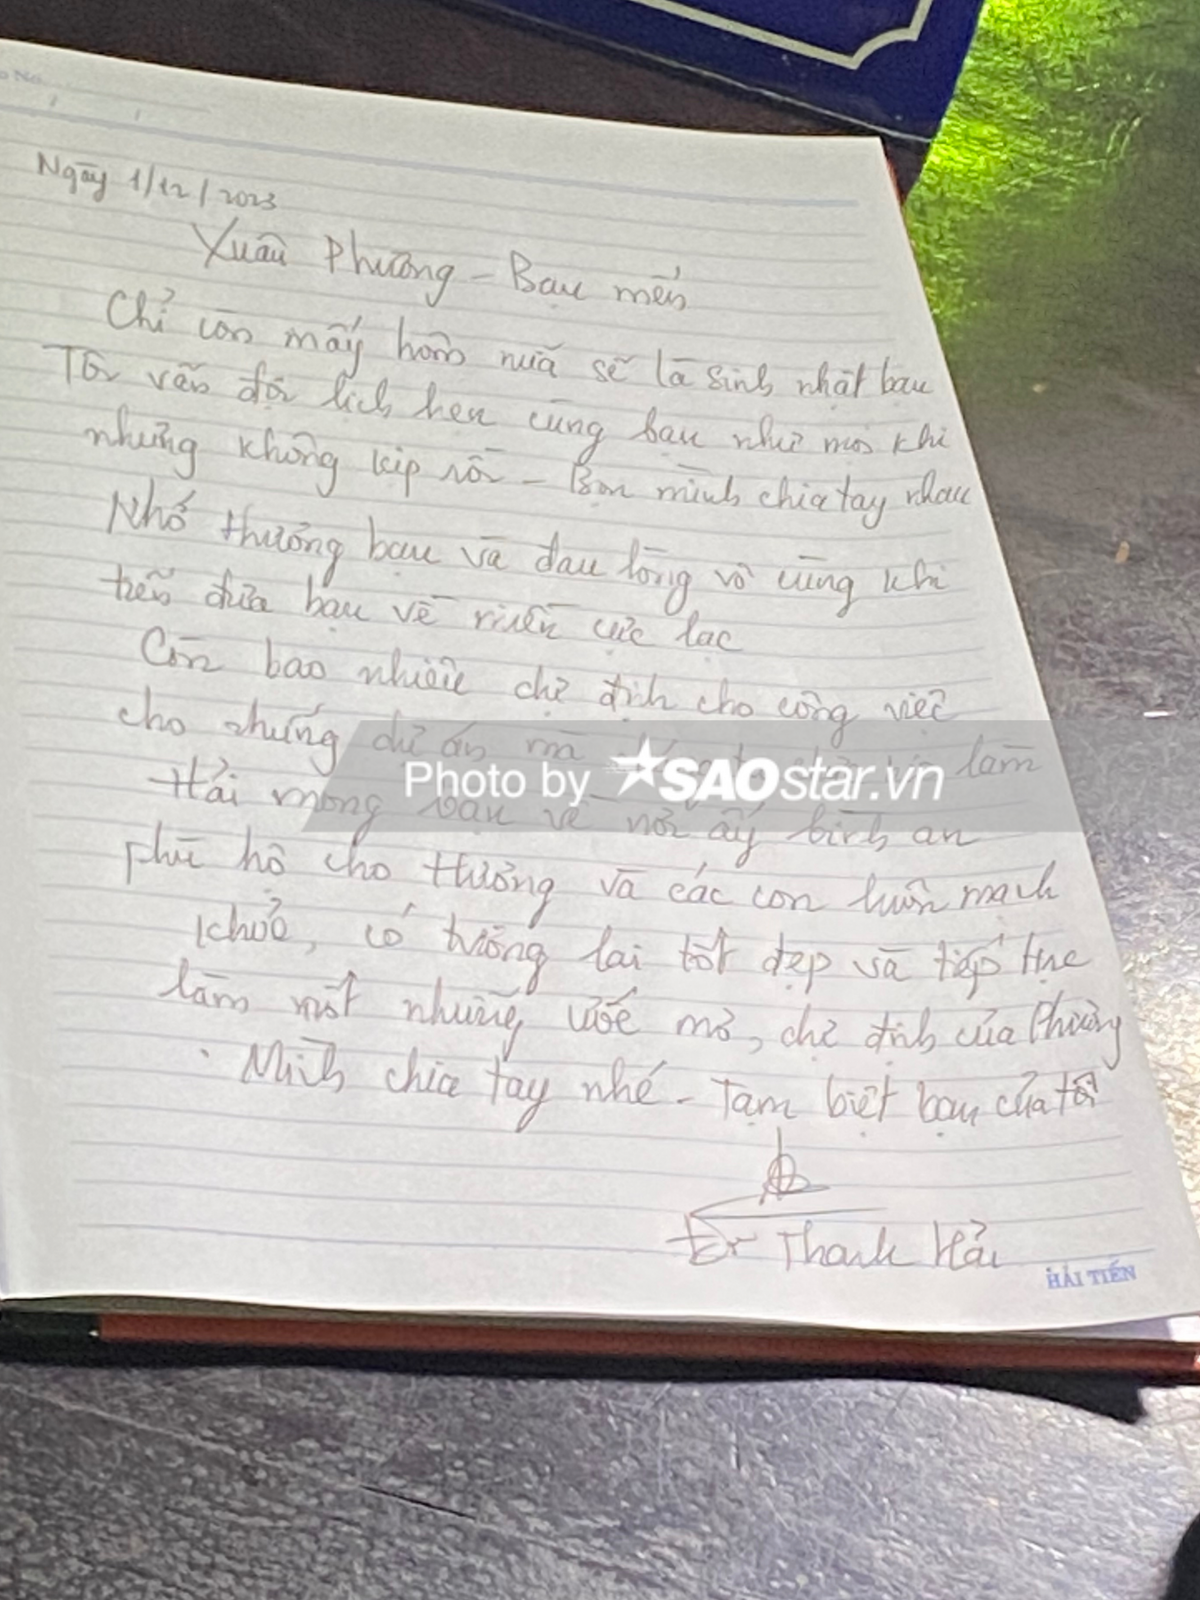 Ngày 1/12/2023
Xuân Phương - Bạn mến
Chỉ còn mấy hôm nữa sẽ là sinh nhật bạn
Tôi vẫn đợi lịch hẹn cùng bạn như mọi khi
nhưng không kịp rồi - Bọn mình chia tay nhau
Nhớ thương bạn và đau lòng vô cùng khi
tiễn đưa bạn về miền cực lạc
Còn bao nhiêu dự định cho công việc
cho những dự án mà làm
Hải mong bạn về nơi ấy bình an
phù hộ cho Thương và các con luôn mạnh
khoẻ, có tương lai tốt đẹp và tiếp tục
làm nốt những ước mơ, dự định của Phương
Mình chia tay nhé - Tạm biệt bạn của tôi
Thanh Hải
HẢI TIẾN
Photo by SAOstar.vn